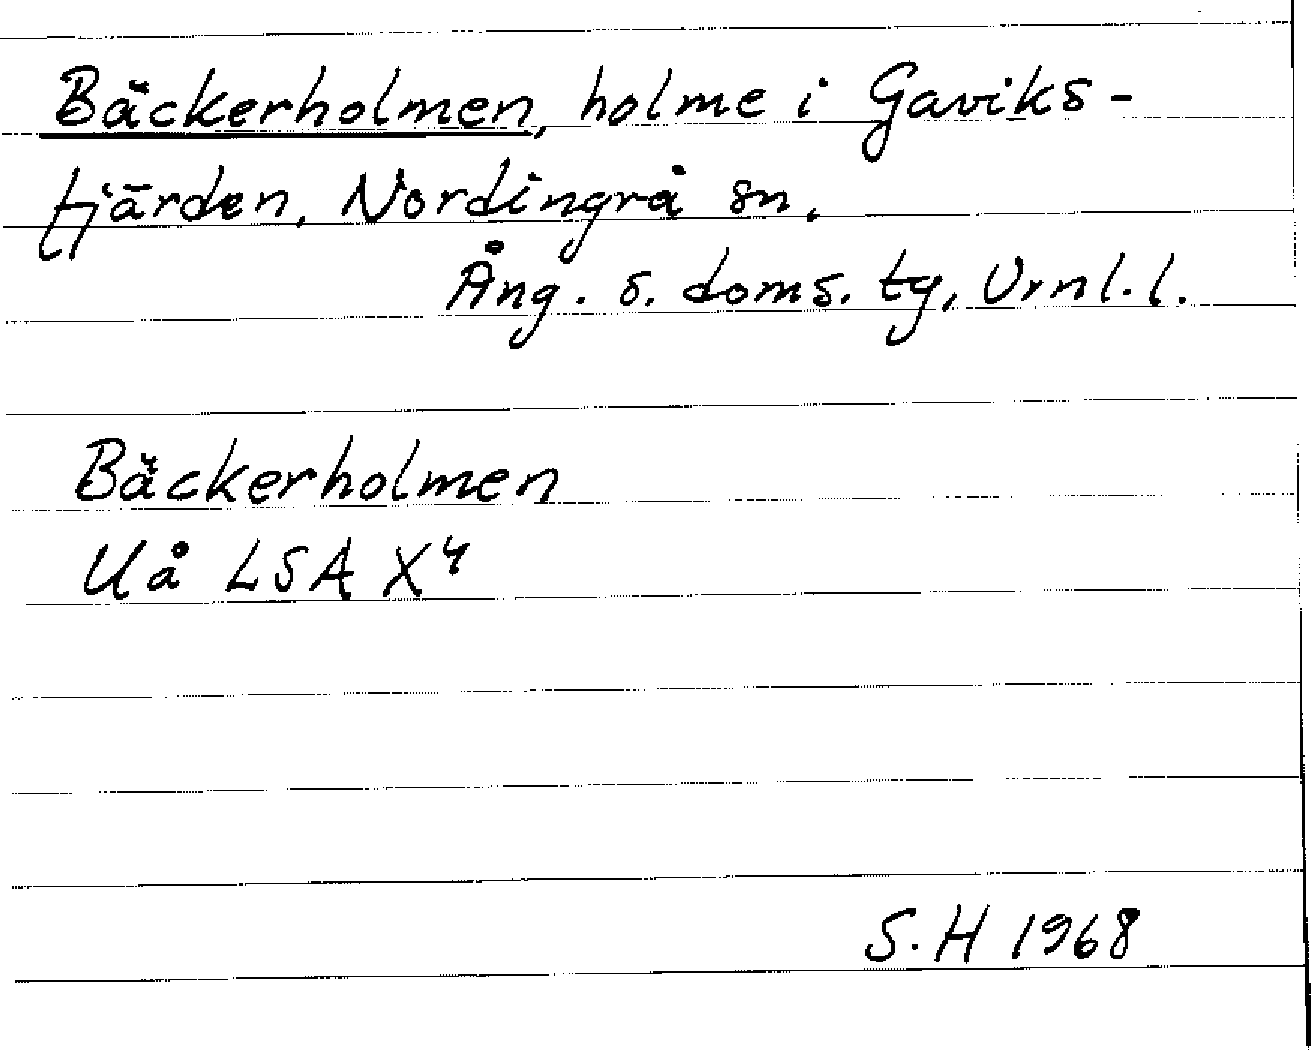 Bäckerholmen, holme i Gaviks-
fjärden, Nordingrå sn.
Ång. s. doms. tg, Vrnl. l.
Bäckerholmen
Uå LSA X4
S.H 1968